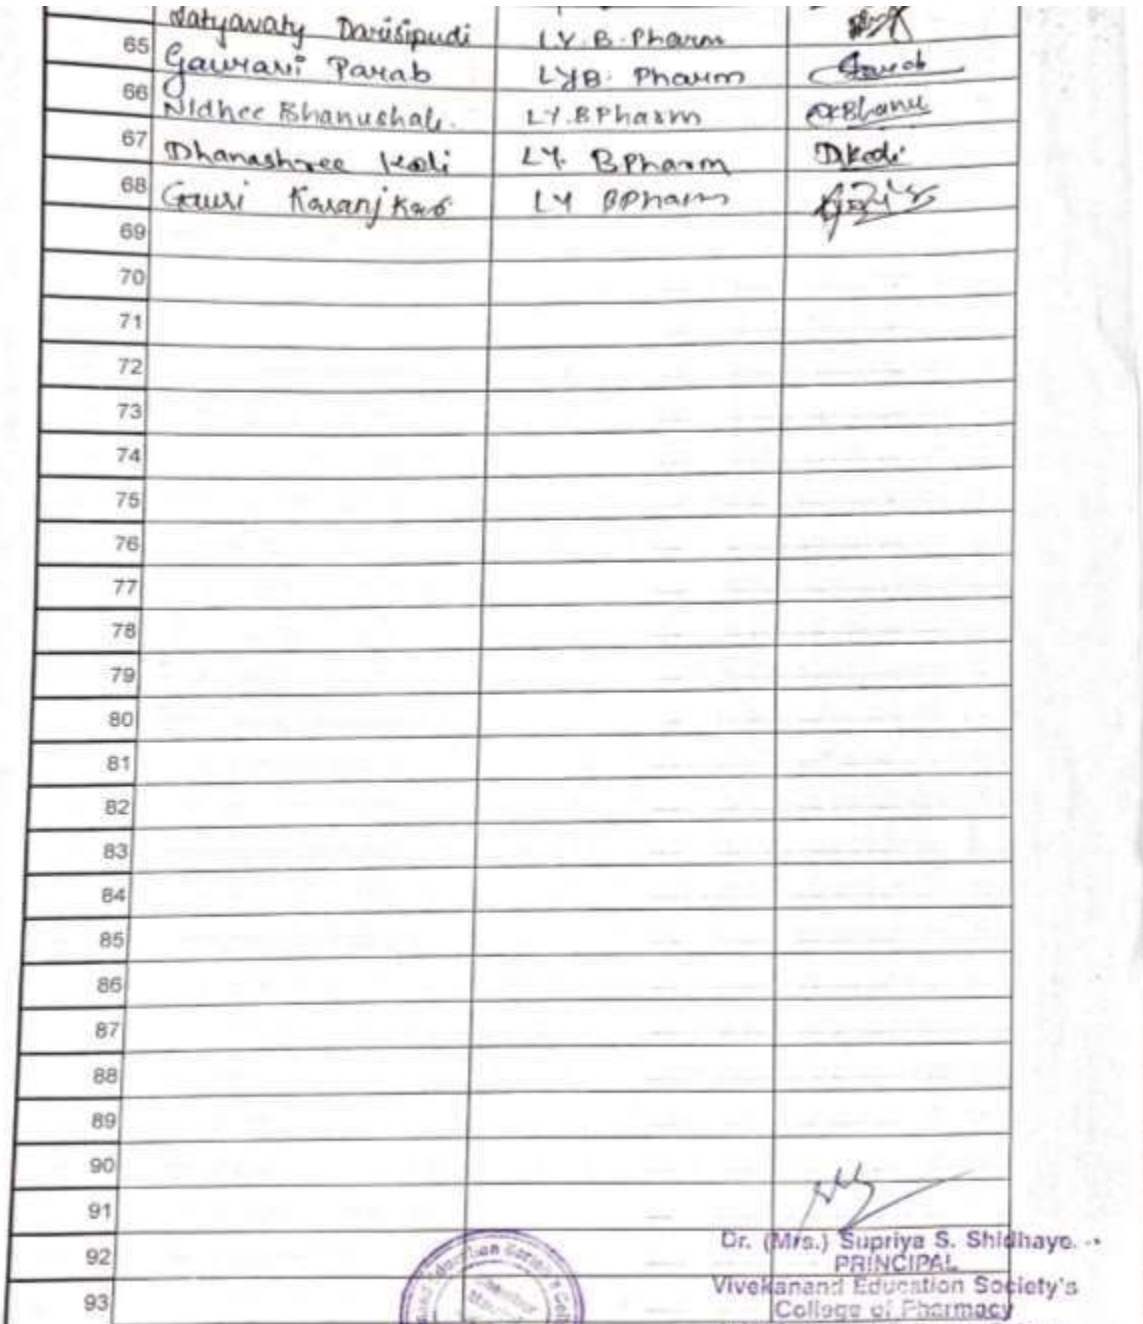 Satyavaty Darisipudi L.Y. B. Pharm
65 Gauravi Parab LYB. Pharm Parab
66 Nidhee Bhanushali. L.Y.BPharm Bhanu
67 Dhanashree Koli LY. BPharm DKoli
68 Gauri Karanjkar LY BPharm
69
70
71
72
73
74
75
76
77
78
79
80
81
82
83
84
85
86
87
88
89
90
91
92 Dr. (Mrs.) Supriya S. Shidhaye.
PRINCIPAL
Vivekanand Education Society's
93 College of Pharmacy